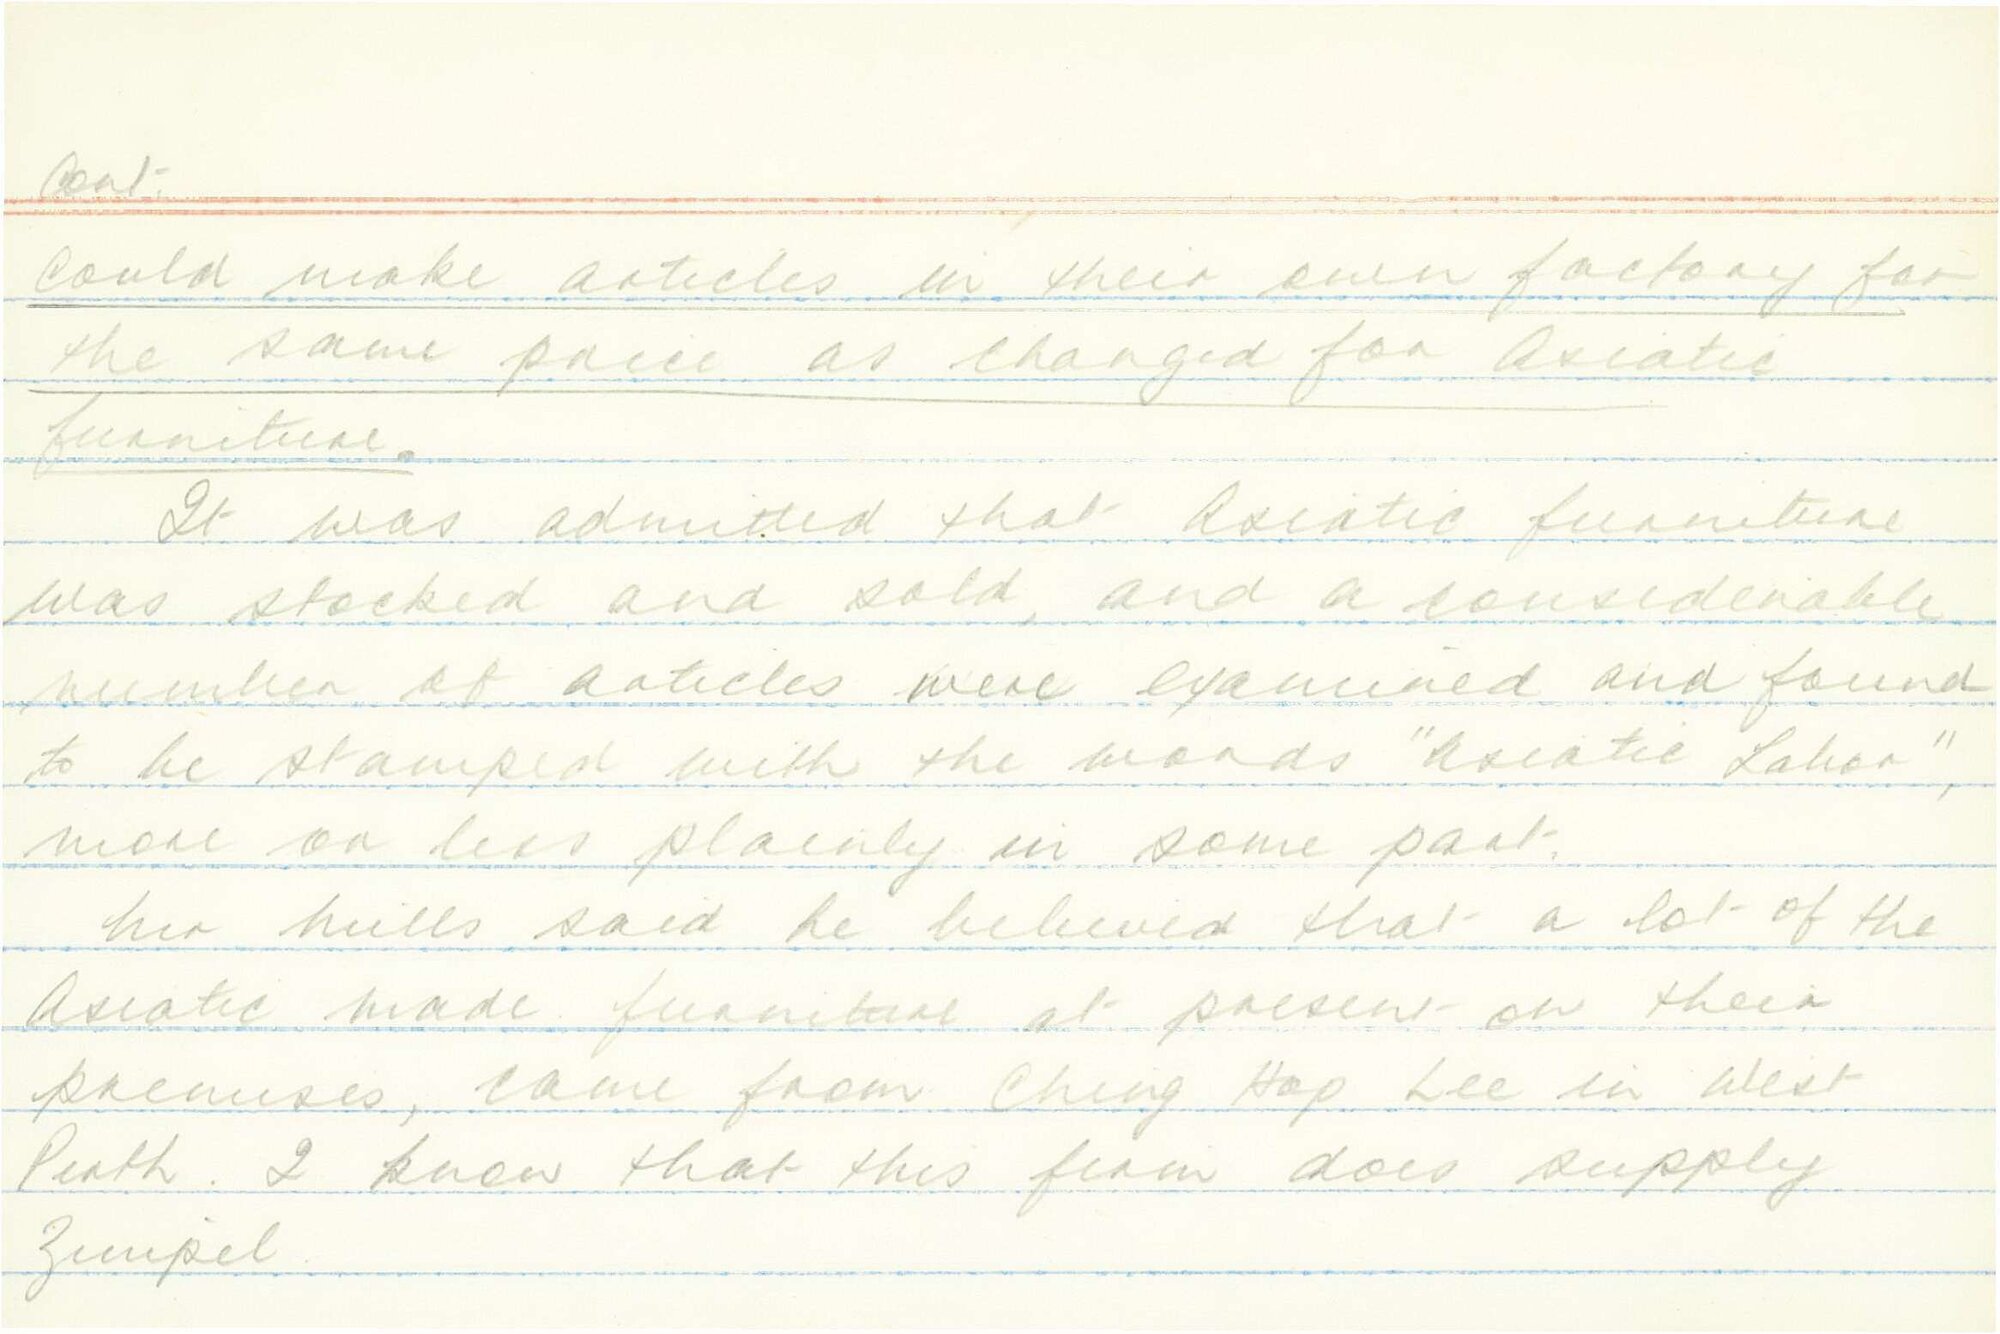 Cont.
could make articles in their own factory for
the same price as charged for Asiatic
furniture.
It was admitted that Asiatic furniture
was stocked and sold, and a considerable
number of articles were examined and found
to be stamped with the words "Asiatic Labor",
more or less plainly in some part.
Mr Mills said he believed that a lot of the
Asiatic made furniture at present on their
premises, came from Ching Hop Lee in West
Perth. I know that this firm does supply
Zimpel